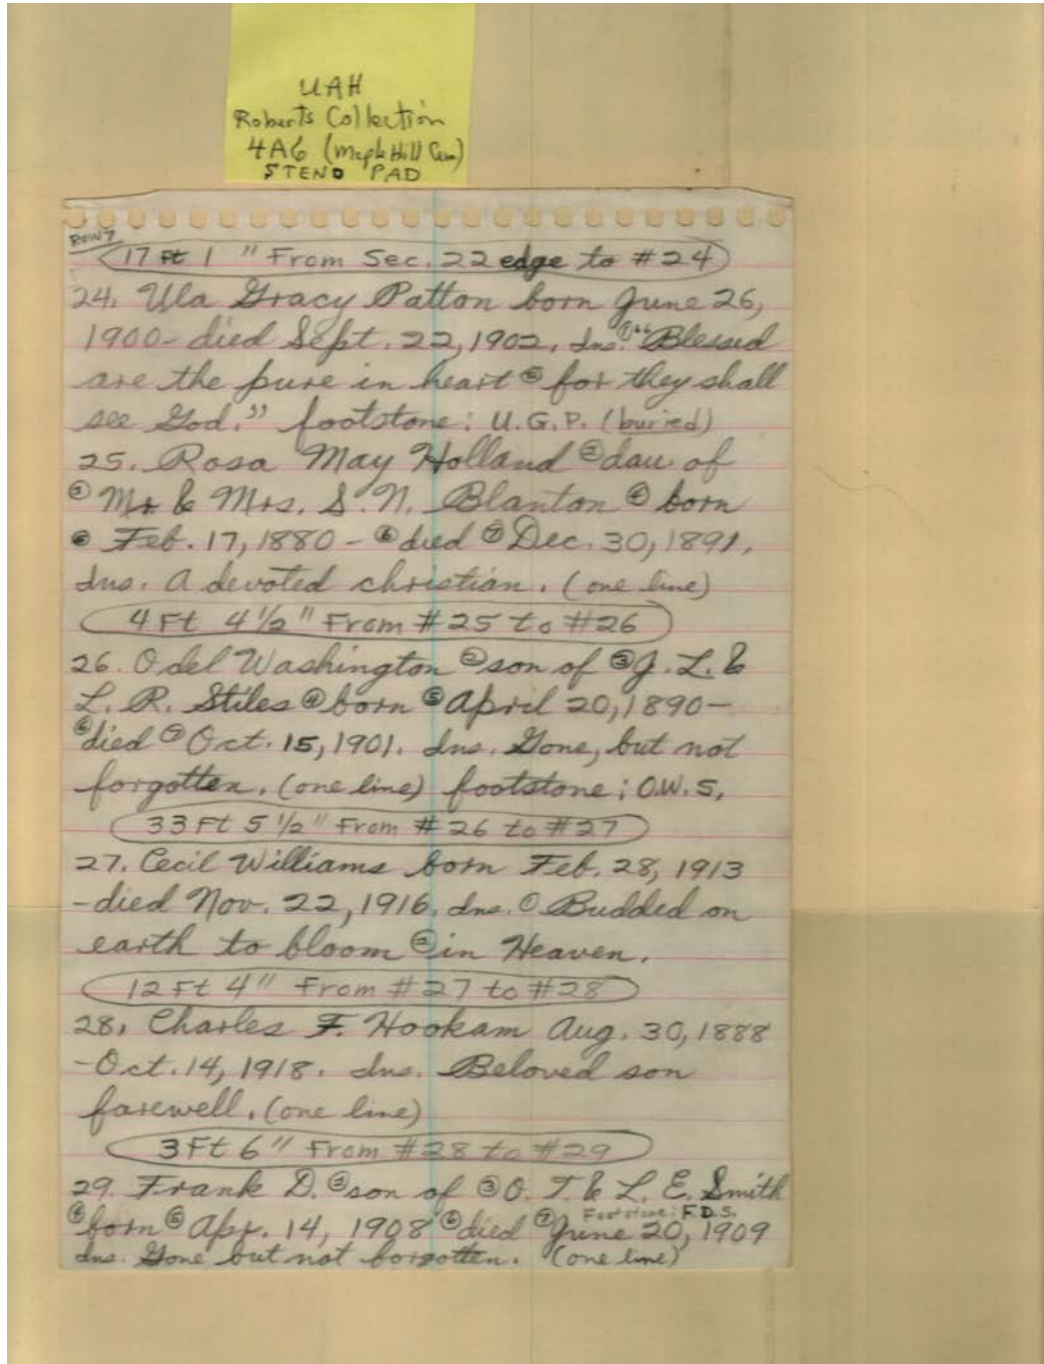 UAH
Roberts Collection
4A6 (Maple Hill Cem)
STENO PAD
ROW 7
17 Ft 1 " From Sec. 22 edge to #24
24. Ula Gracy Patton born June 26,
1900 - died Sept. 22, 1902. Ins. ① "Blessed
are the pure in heart ② for they shall
see God." footstone: U.G.P. (buried)
25. Rosa May Holland ② dau of
③ Mr & Mrs. S. N. Blanton ④ born
⑤ Feb. 17, 1880 - ⑥ died ⑦ Dec. 30, 1891.
Ins. A devoted christian. (one line)
4 Ft 4 1/2" From #25 to #26
26. Odel Washington ② son of ③ J. L. &
L. R. Stiles ④ born ⑤ April 20, 1890 -
⑥ died ⑦ Oct. 15, 1901. Ins. Gone, but not
forgotten. (one line) footstone: O.W.S.
33 Ft 5 1/2" From #26 to #27
27. Cecil Williams born Feb. 28, 1913
- died Nov. 22, 1916. Ins. ① Budded on
earth to bloom ② in Heaven.
12 Ft 4" From #27 to #28
28. Charles F. Hookam Aug. 30, 1888
- Oct. 14, 1918. Ins. Beloved son
farewell. (one line)
3 Ft 6" From #28 to #29
29. Frank D. ② son of ③ O. T. & L. E. Smith
Footstone: F.D.S.
④ born ⑤ Apr. 14, 1908 ⑥ died ⑦ June 20, 1909
Ins. Gone but not forgotten. (one line)